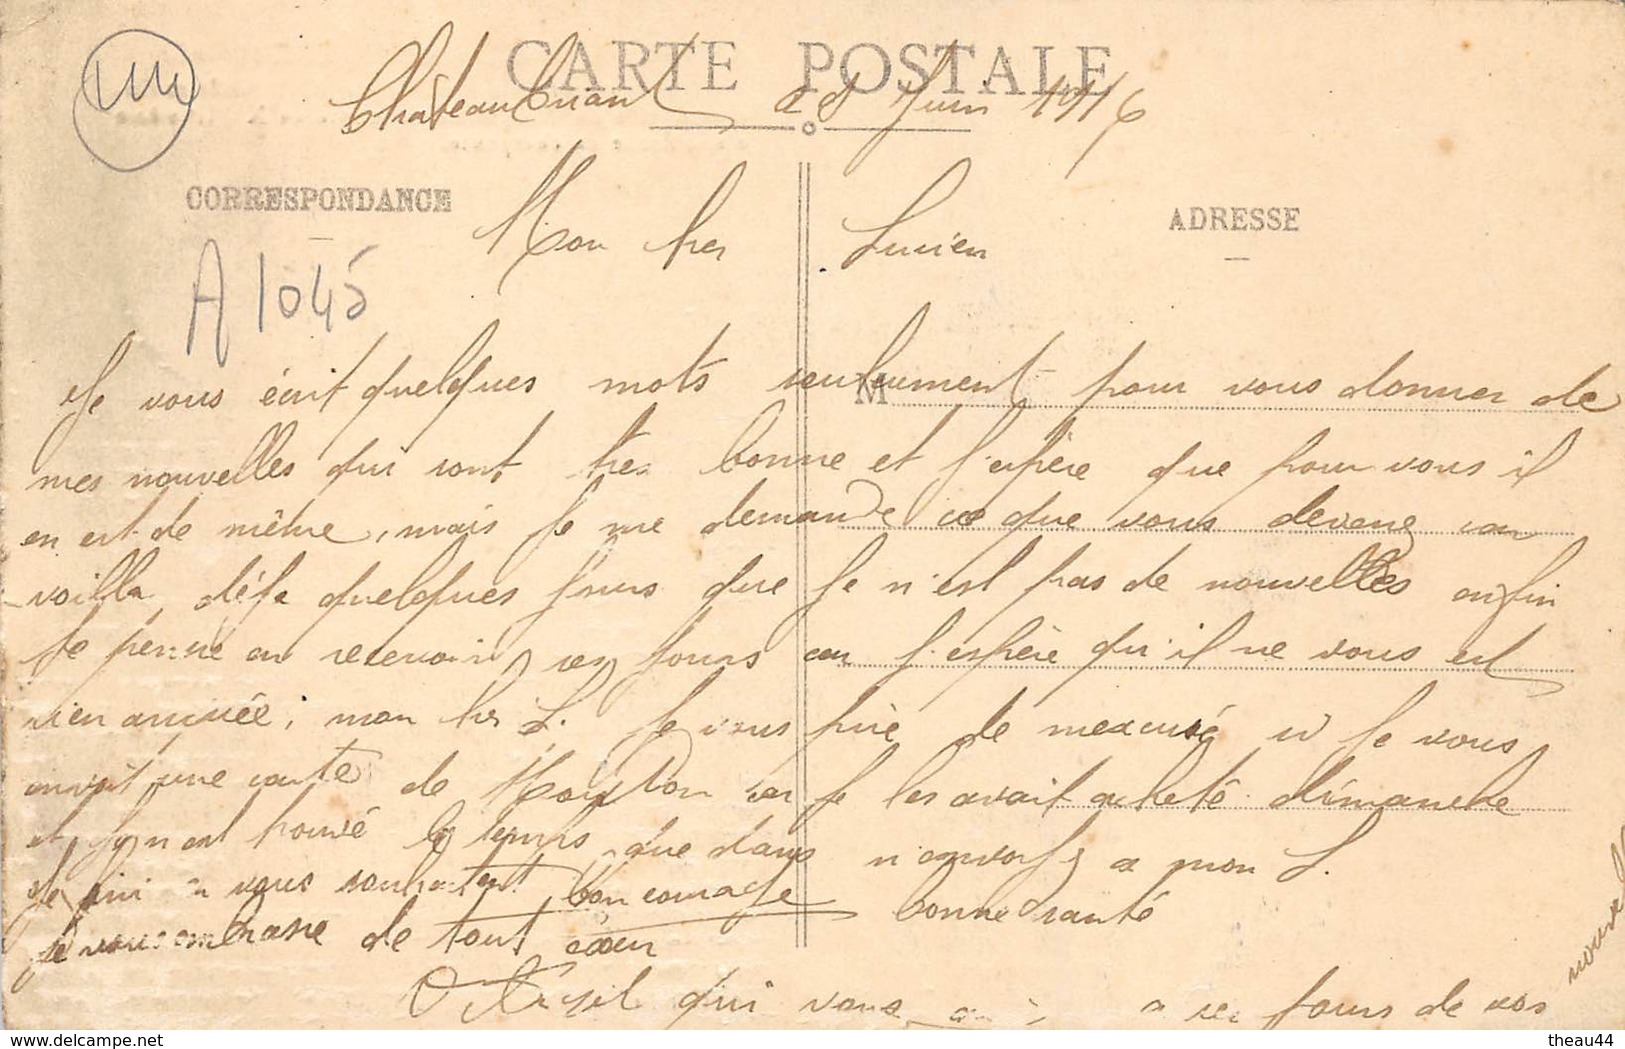 CARTE POSTALE
Châteaubriant 28 Juin 1916
CORRESPONDANCE
ADRESSE
A 1045
Mon cher Lucien
M
Je vous écrit quelques mots seulement pour vous donner de
mes nouvelles qui sont tres bonne et j'espère que pour vous il
en est de même, mais je me demande ce que vous devenez car
voilla déja quelques jours que je n'est pas de nouvelles enfin
je pense en recevoir ces jours car j'espère qu'il ne vous est
rien arrivée; mon cher L. je vous prie de mexcusé si je vous
envoit une carte de car je les avait acheté dimanche
et trouvé le temps que dans a mon L.
Je fini vous bon courage bonne santé
je vous embrasse de tout cœur
qui vous a ses jours de vos
nouvel
delcampe.net
theau44